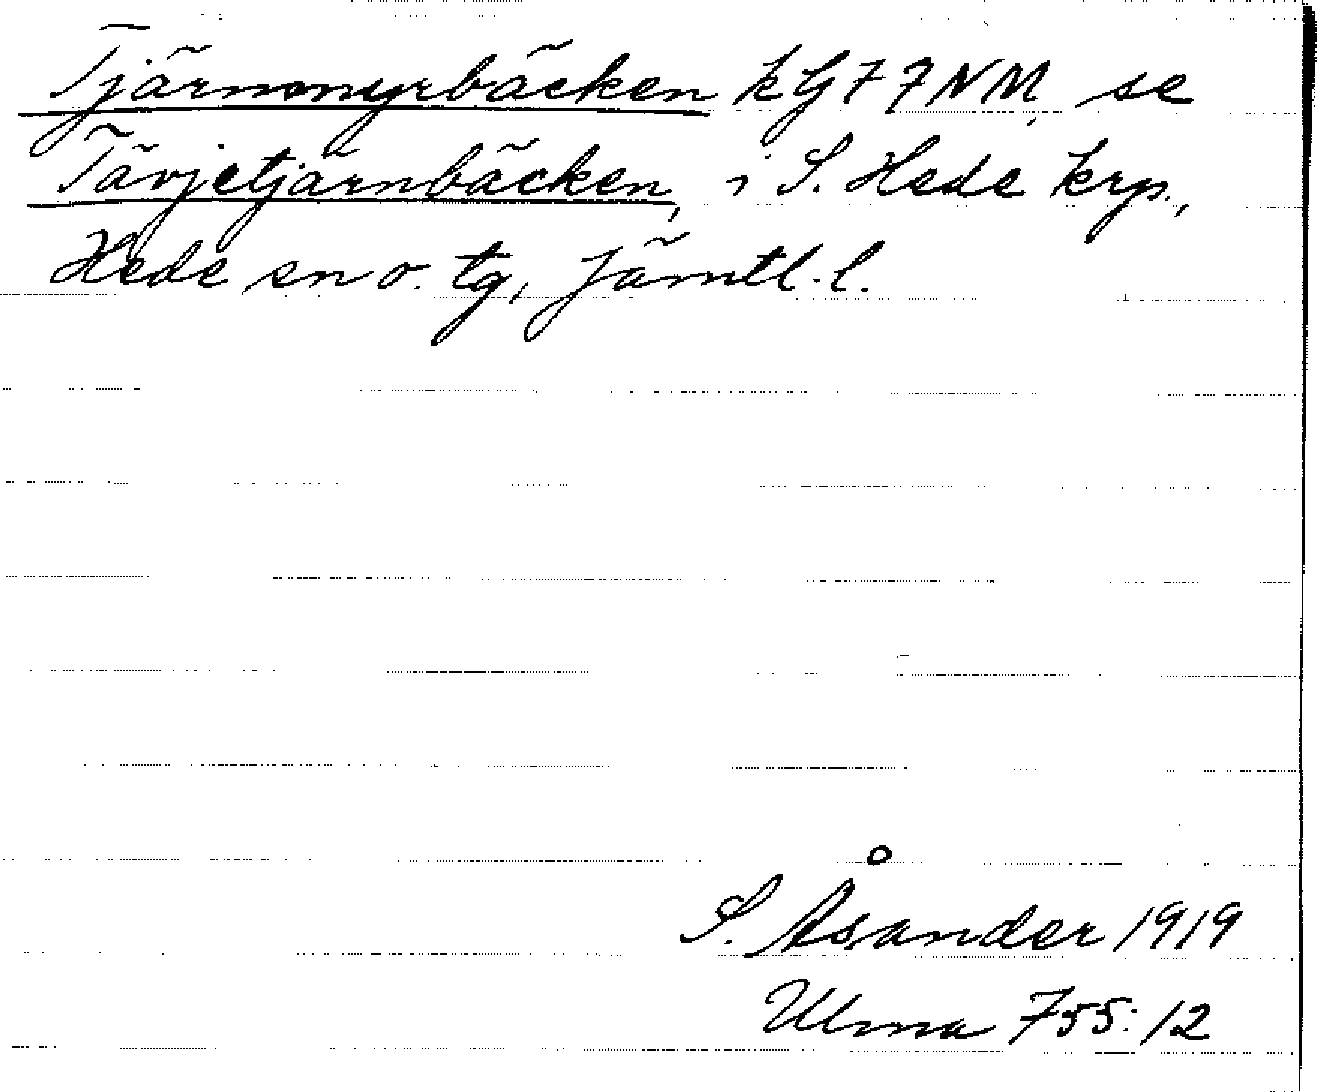 Tjärnmyrbäcken kG77NM, se
Tävjetjärnbäcken, i S. Hede krp.,
Hede sn o. tg, Jämtl. l.
S. Åsander 1919
Ulma 755:12